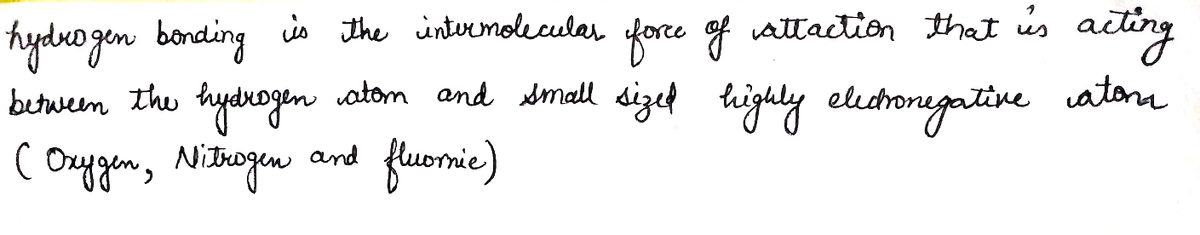 hydrogen bonding is the intermolecular force of attaction that is acting
between the hydrogen atom and small sized highly electronegative atoms
( Oxygen, Nitrogen and fluornie)